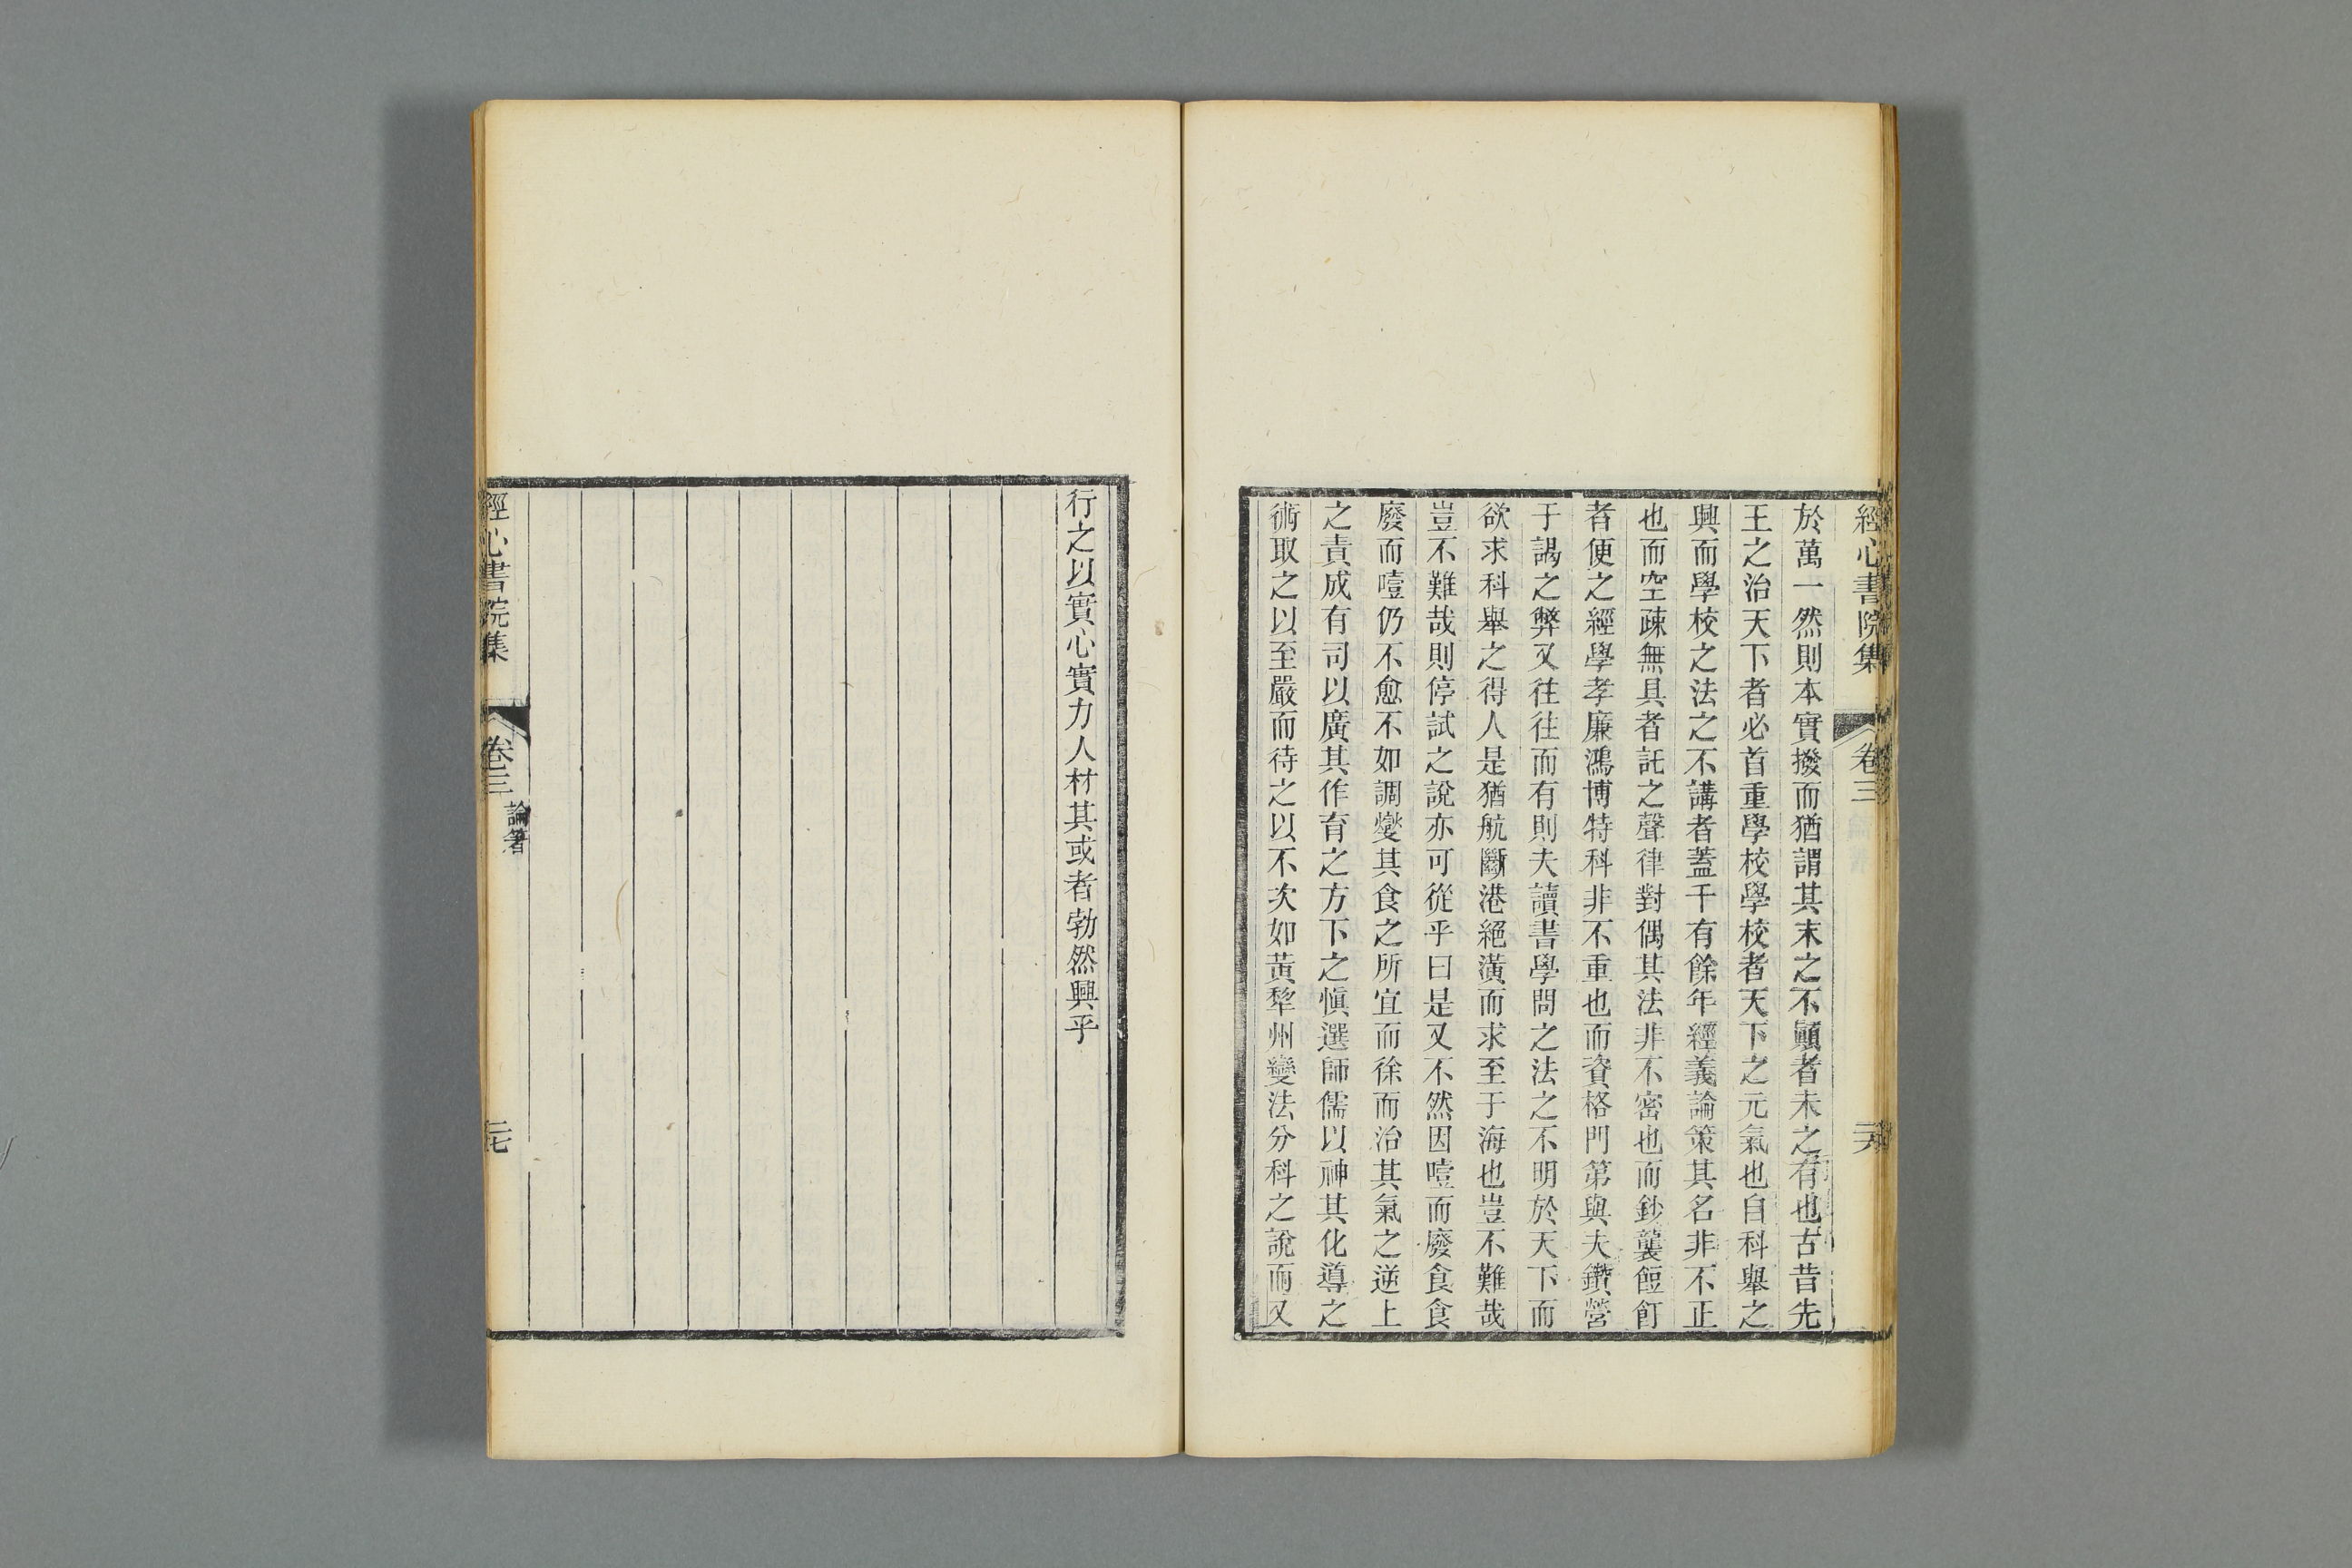 經心書院集 卷三 二六
於萬一然則本實撥而猶謂其末之不顚者未之有也古昔先
王之治天下者必首重學校學校者天下之元氣也自科舉之
興而學校之法之不講者蓋千有餘年經義論策其名非不正
也而空疎無具者託之聲律對偶其法非不密也而鈔襲餖飣
者便之經學孝廉鴻博特科非不重也而資格門第與夫鑽營
于謁之弊又往往而有則夫讀書學問之法之不明於天下而
欲求科舉之得人是猶航斷港絕潢而求至于海也豈不難哉
豈不難哉則停試之說亦可從乎曰是又不然因噎而廢食食
廢而噎仍不愈不如調燮其食之所宜而徐而治其氣之逆上
之責成有司以廣其作育之方下之愼選師儒以神其化導之
術取之以至嚴而待之以不次如黃犂州變法分科之說而又
行之以實心實力人材其或者勃然興乎
經心書院集 卷三 論箸 二七